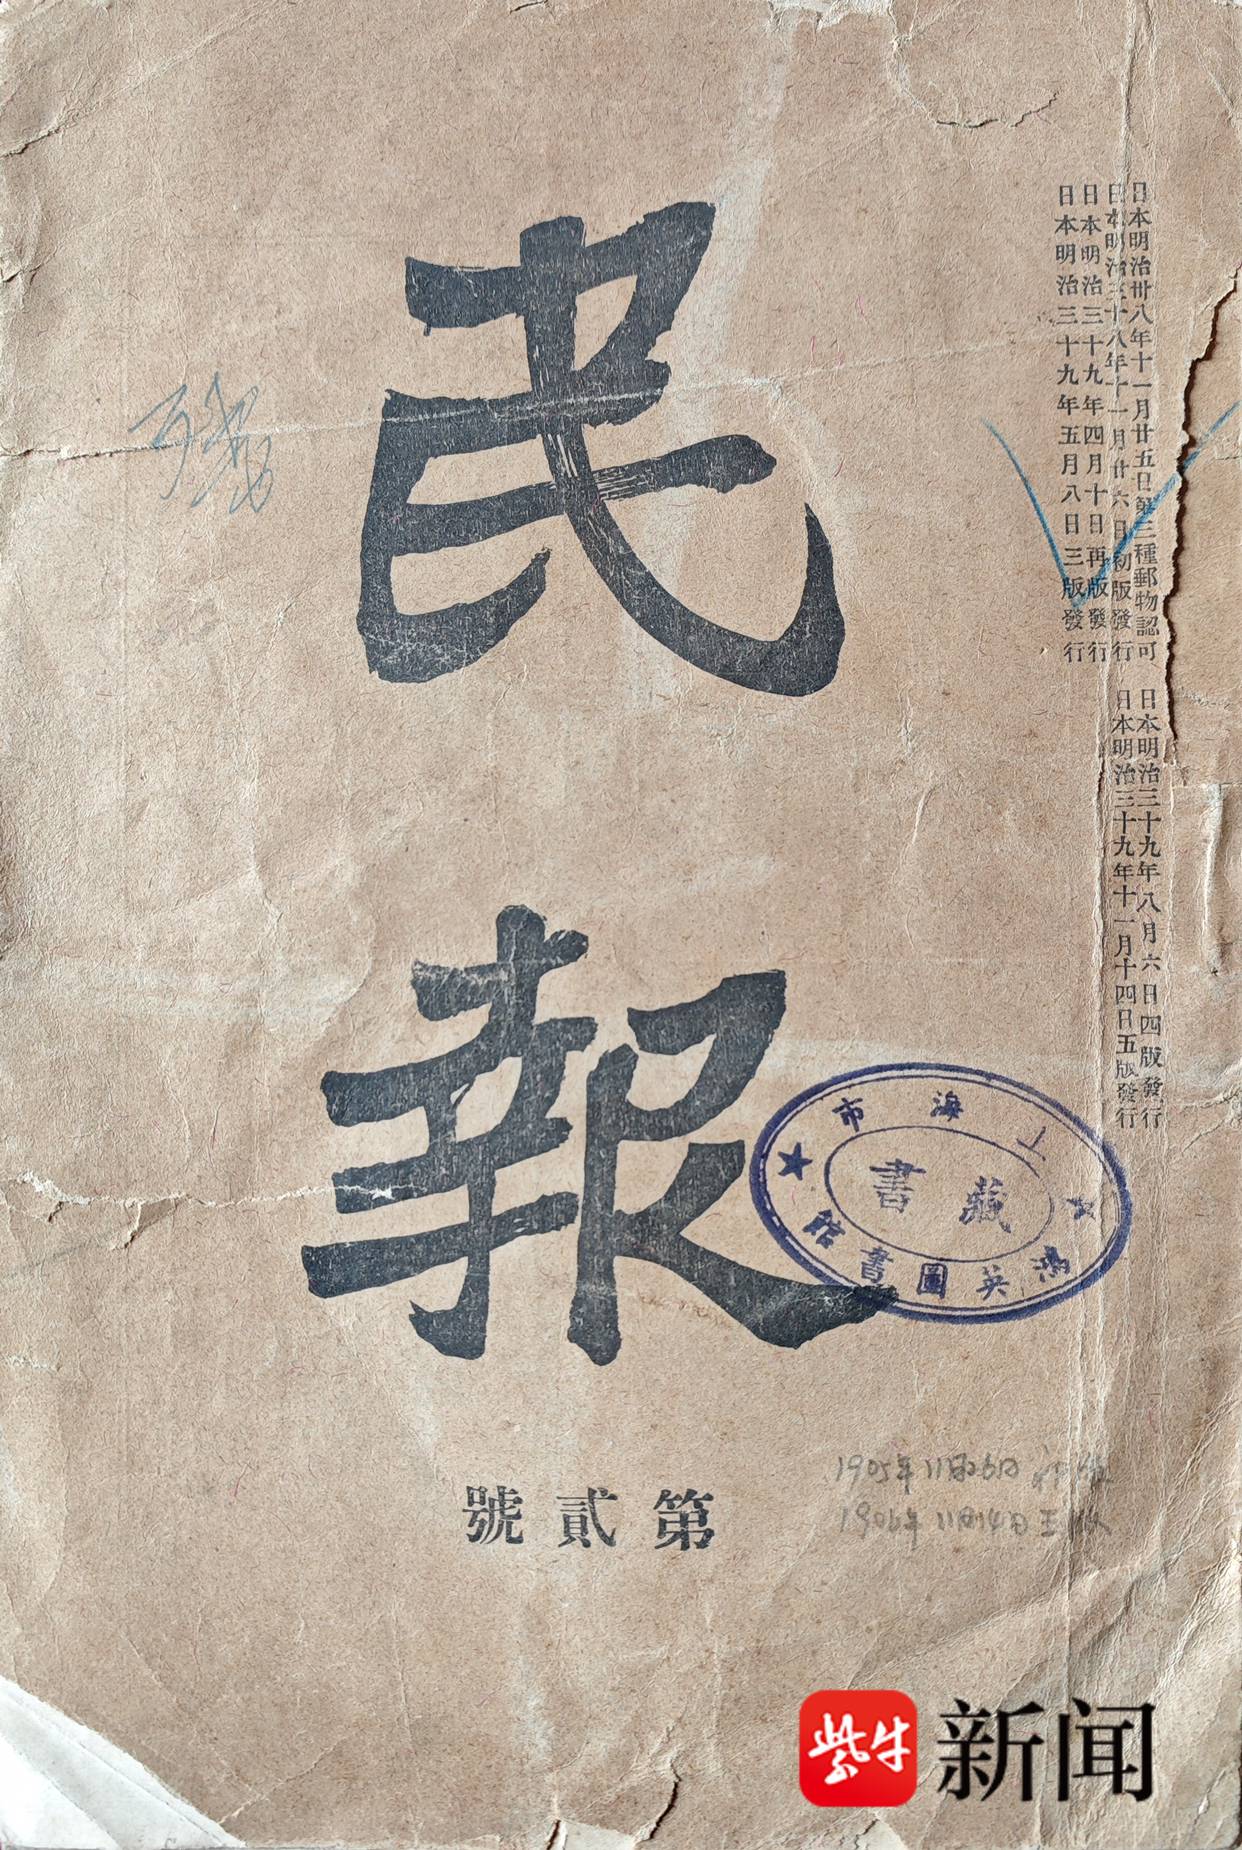 日本明治卅八年十一月廿五日第三種郵物認可
日本明治三十八年十一月廿六日初版發行
日本明治三十九年四月十日再版發行
日本明治三十九年五月八日三版發行
日本明治三十九年八月六日四版發行
日本明治三十九年十一月十四日五版發行
民報
第貳號
上海市
鴻英圖書館
藏書
1905年11月26日
1906年11月14日五版
紫牛
新闻